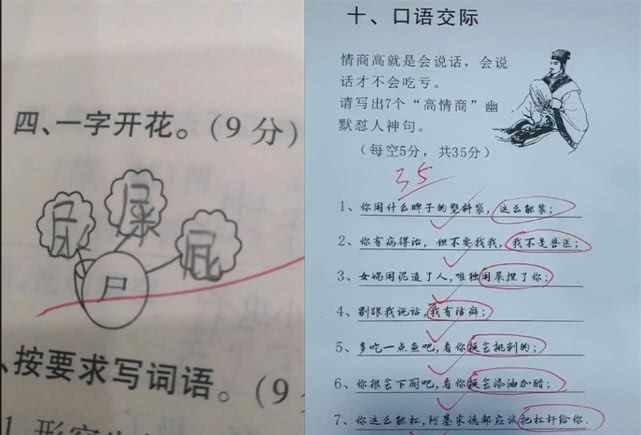 四、一字开花。(9分)
屎
屁
尸
、按要求写词语。(9
十、口语交际
情商高就是会说话，会说
话才不会吃亏。
请写出7个“高情商”幽
默怼人神句。
（每空5分，共35分）
35
1、你用什么牌子的塑料袋，这么能装；
2、你有病得治，但不要找我，我不是兽医；
3、女娲用泥造了人，唯独用粪捏了你；
4、别跟我说话，我有洁癖；
5、多吃一点鱼吧，看你挺会挑刺的；
6、你很会下厨吧，看你挺会添油加醋；
7、你这么能杠，阿基米德都应该把杠杆给你.